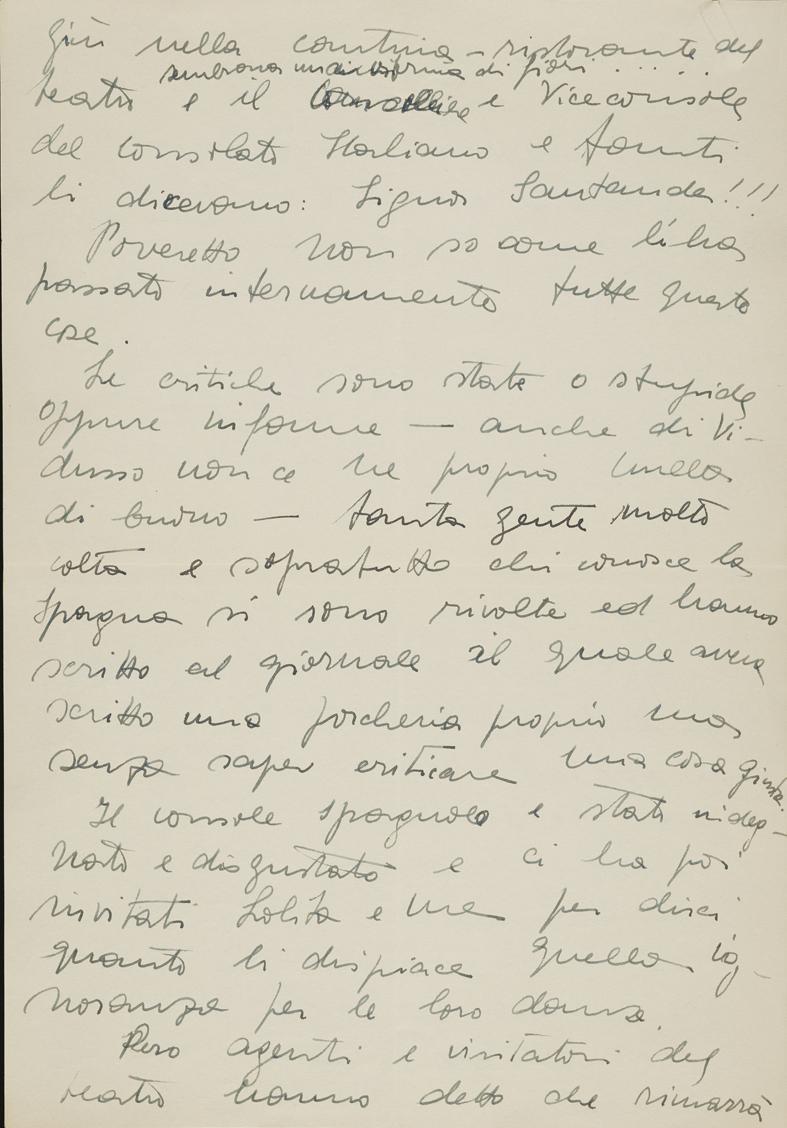 giù nella cantina - ristorante del
sembrava un di fiori . . . . .
teatro e il e Viceconsole
del consolato Italiano e tanti
li dicevano: Signor Santander!!!
Poveretto non so come li ha
passato internamento tutte questo
cose.
Le critiche sono state o stupide
oppure infame — anche di Vi-
dusso non ce ne proprio nulla
di buono — tanta gente molto
colta e sopratutto chi conosce la
Spagna si sono rivolte ed hanno
scritto al giornale il quale aveva
scritto una porcheria proprio una
senza saper criticare una cosa giusta.
Il console Spagnolo e stato indeg-
nato e disgustato e ci ha poi
invitati Lolita e me per dirci
quanto li dispiace quella ig-
noranza per le loro danze.
Pero agenti e visitatori del
teatro hanno detto che rimarrà